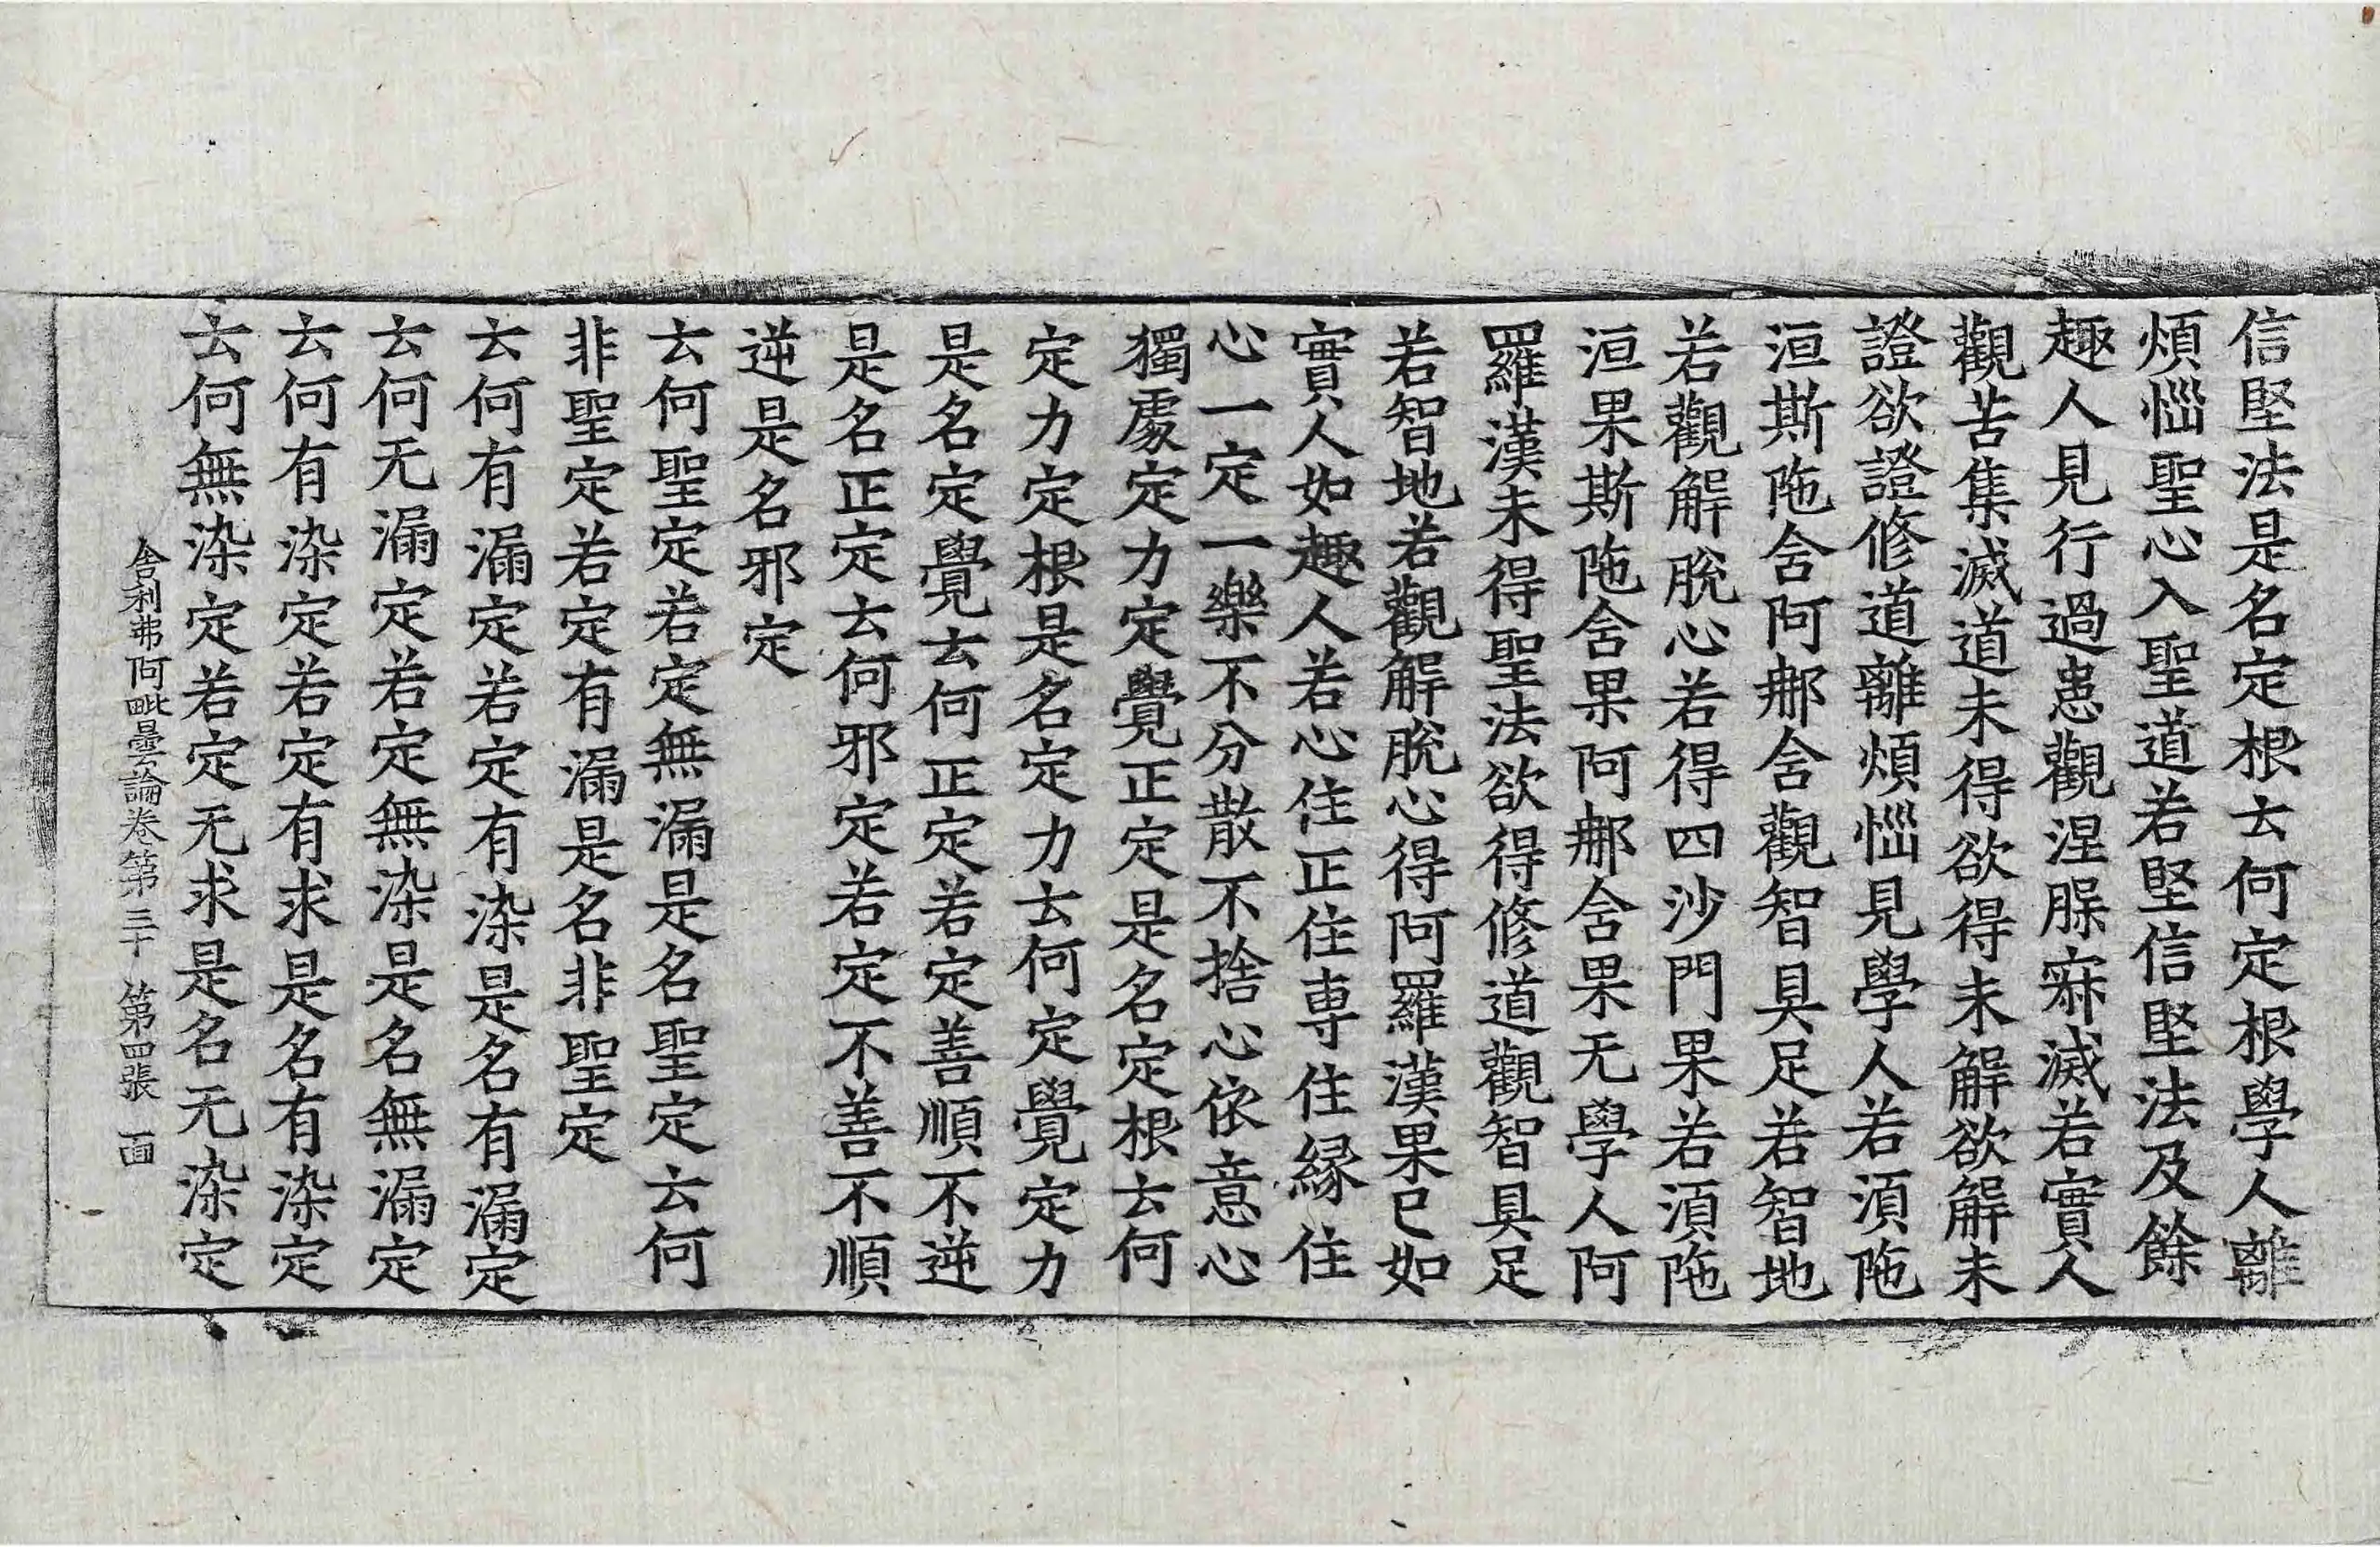 信堅法是名定根去何定根學人離
煩惱聖心入聖道若堅信堅法及餘
趣人見行過患觀涅脲㝛滅若實人
觀苦集滅道未得欲得未解欲解未
證欲證修道離煩惱見學人若湏陁
洹斯陁舍阿𨚗舍觀智具足若智地
若觀解脫心若得四沙門果若湏陁
洹果斯陁舍果阿𨚗舍果无學人阿
羅漢未得聖法欲得修道觀智具足
若智地若觀解脫心得阿羅漢果已如
實人如趣人若心住正住専住緣住
心一定一樂不分散不捨心依意心
獨處定力定覺正定是名定根去何
定力定根是名定力去何定覺定力
是名定覺去何正定若定善順不逆
是名正定去何邪定若定不善不順
逆是名邪定
去何聖定若定無漏是名聖定去何
非聖定若定有漏是名非聖定
去何有漏定若定有染是名有漏定
去何无漏定若定無染是名無漏定
去何有染定若定有求是名有染定
去何無染定若定无求是名无染定
舍利弗阿毗曇論卷第三十 第四張 面